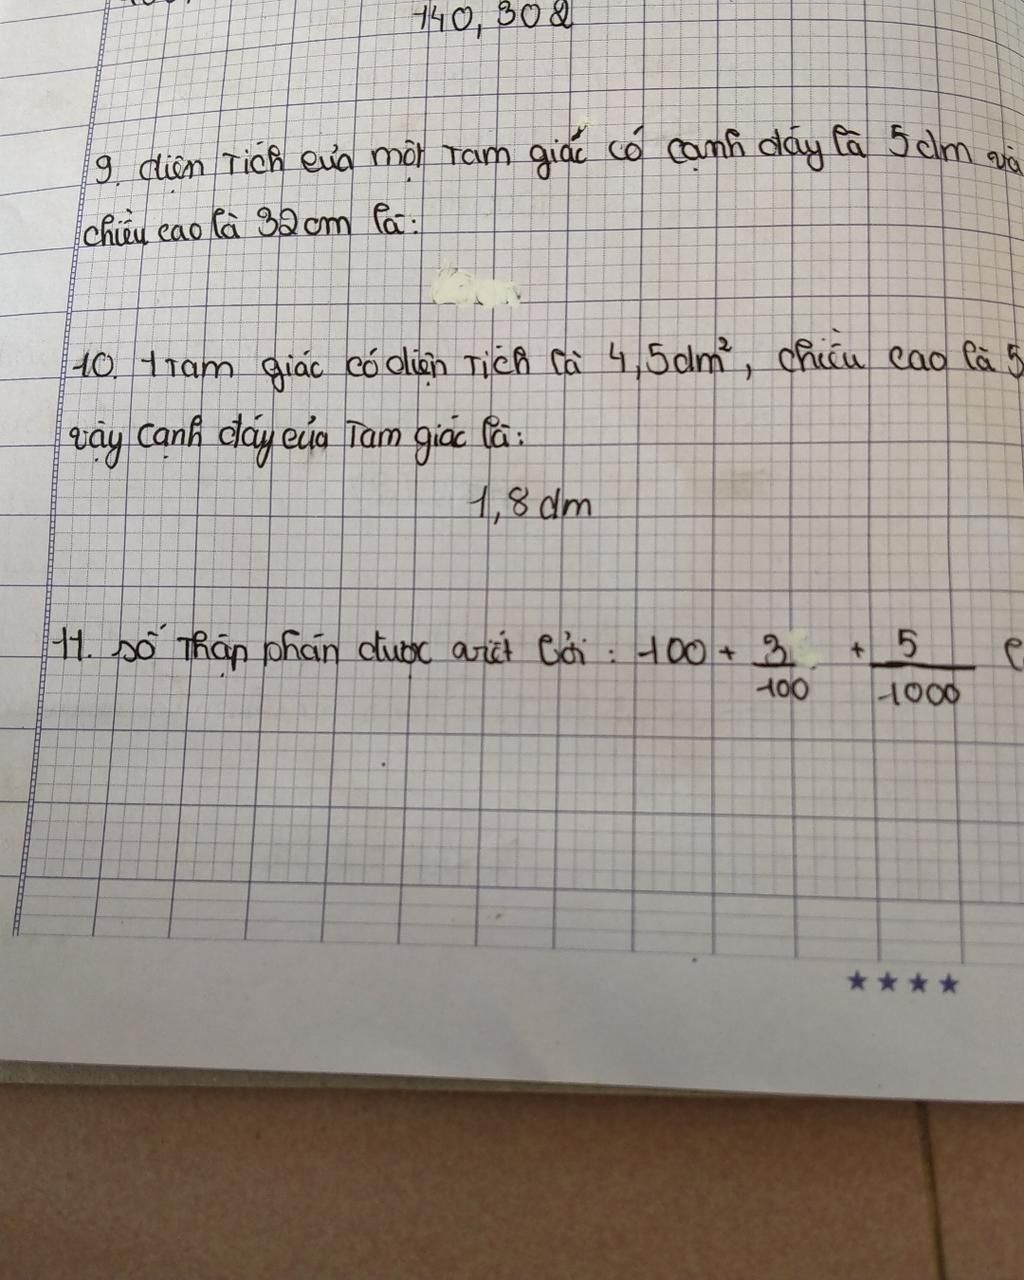 140,302
9. diện tích của một tam giác có cạnh đáy là 5dm và
chiều cao là 32cm là:
10. 1 tam giác có diện tích là 4,5dm², chiều cao là 5
vậy cạnh đáy của tam giác là:
1,8dm
11. số thập phân được viết bởi: 100 + 3/100 + 5/1000